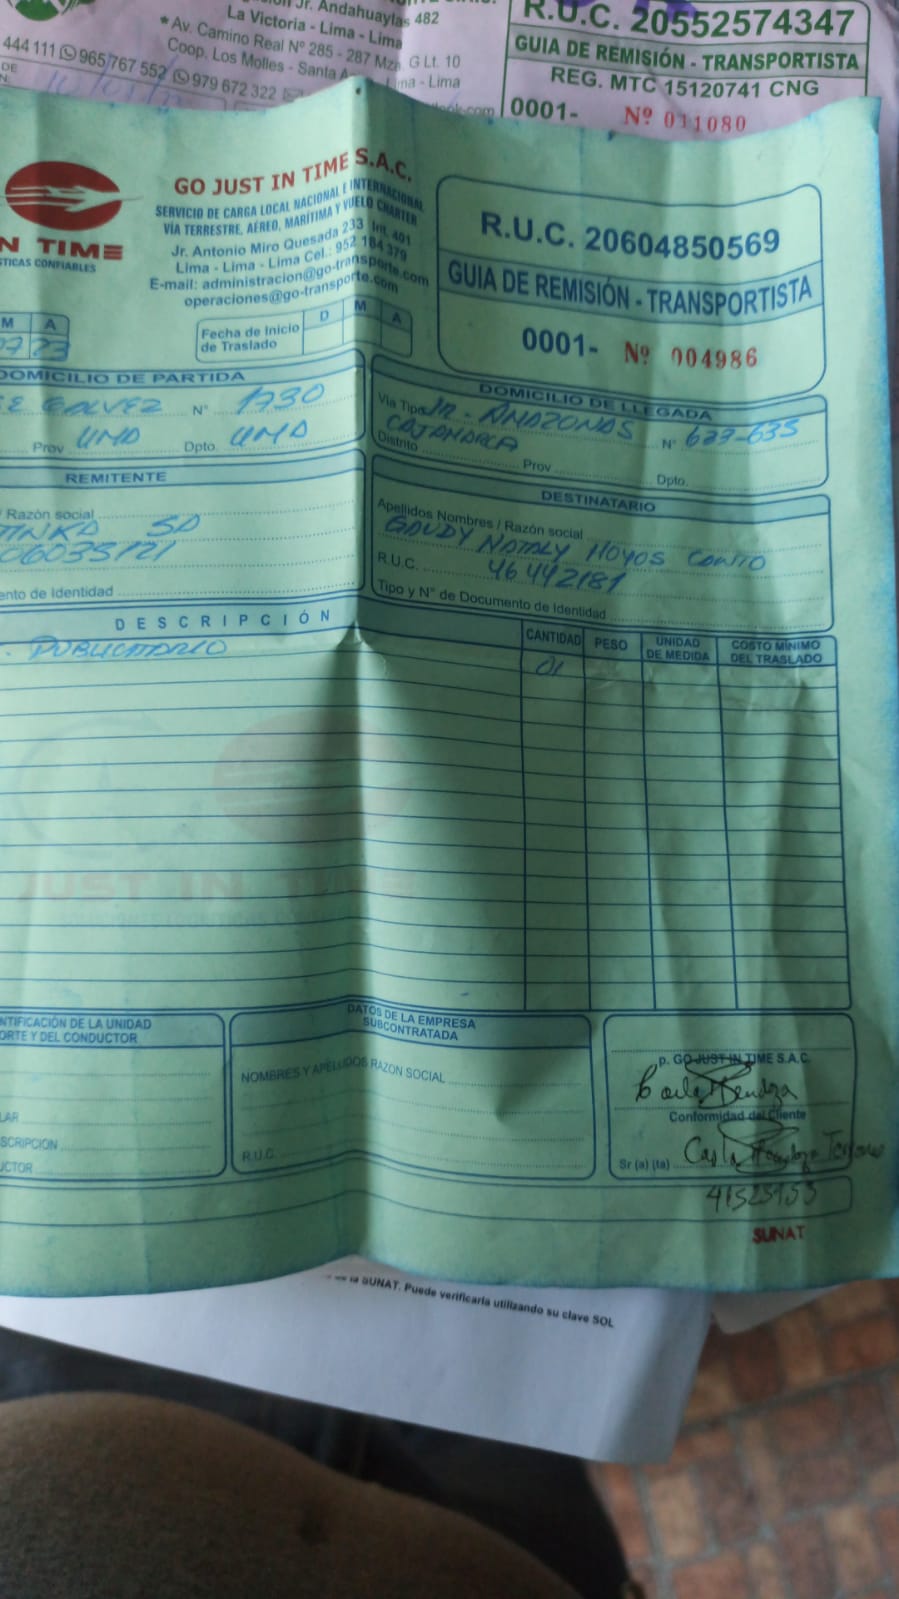 Jr. Andahuaylas 482
La Victoria - Lima - Lima
* Av. Camino Real Nº 285 - 287 Mza. G Lt. 10
Coop. Los Molles - Santa A Lima - Lima
444 111 965 767 552 979 672 322
look.com
R.U.C. 20552574347
GUIA DE REMISIÓN - TRANSPORTISTA
REG. MTC 15120741 CNG
0001- Nº 011080
N TIME
STICAS CONFIABLES
GO JUST IN TIME S.A.C.
SERVICIO DE CARGA LOCAL NACIONAL E INTERNACIONAL
VÍA TERRESTRE, AÉREO, MARÍTIMA Y VUELO CHARTER
Jr. Antonio Miro Quesada 233 Int. 401
Lima - Lima - Lima Cel.: 952 184 379
E-mail: administracion@go-transporte.com
operaciones@go-transporte.com
R.U.C. 20604850569
GUIA DE REMISIÓN - TRANSPORTISTA
0001- Nº 004986
M A
07 23
Fecha de Inicio de Traslado D M A
DOMICILIO DE PARTIDA
E GALVEZ Nº 1730
Prov LIMA Dpto. LIMA
DOMICILIO DE LLEGADA
Via Tipo Jr. AMAZONAS Nº 633-635
CAJAMARCA
Distrito Prov Dpto.
REMITENTE
/ Razón social
TINKA SA
06035121
ento de Identidad
DESTINATARIO
Apellidos Nombres / Razón social
GAUDY NATALY HOYOS
R.U.C. 46442181
Tipo y N° de Documento de Identidad
DESCRIPCIÓN CANTIDAD PESO UNIDAD DE MEDIDA COSTO MÍNIMO DEL TRASLADO
. PUBLICITARIO 01
JUST IN TIME
NTIFICACIÓN DE LA UNIDAD
ORTE Y DEL CONDUCTOR
LAR
SCRIPCION
UCTOR
DATOS DE LA EMPRESA
SUBCONTRATADA
NOMBRES Y APELLIDOS RAZON SOCIAL
R.U.C.
p. GO JUST IN TIME S.A.C.
Carla Mendoza
Conformidad del Cliente
Sr (a) (ta) Carla Mendoza
41523953
SUNAT
la SUNAT. Puede verificarla utilizando su clave SOL